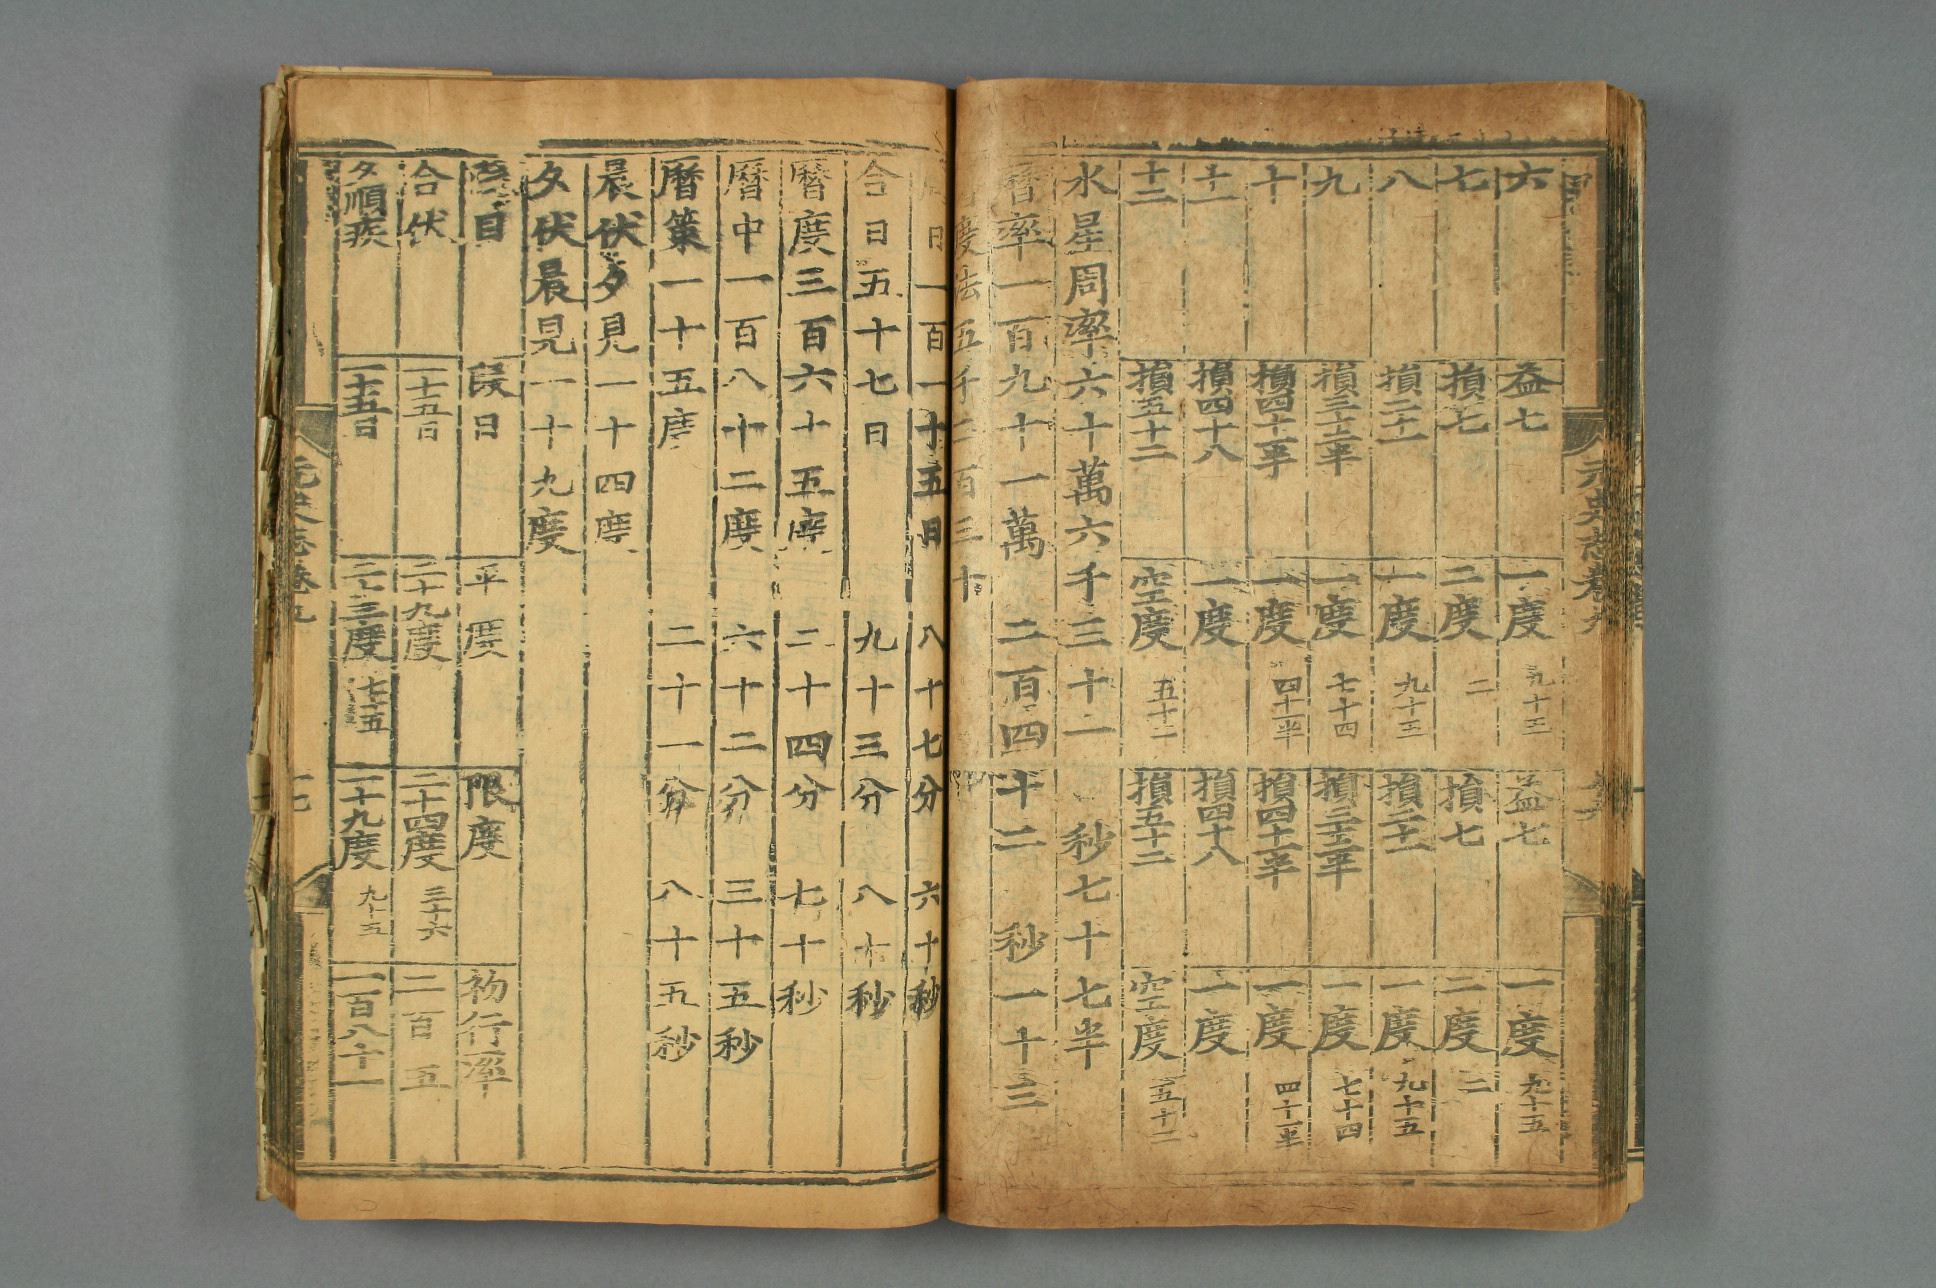 六 益七 一度 九十三 益七 一度 九十五
七 損七 二度 二 損七 二度 二
八 損二十一 一度 九十三 損二十一 一度 九十五
九 損三十三半 一度 七十四 損三十三半 一度 七十四
十 損四十二半 一度 四十一半 損四十二半 一度 四十一半
十一 損四十八 一度 損四十八 一度
十二 損五十二 空度 五十二 損五十二 空度 五十二
水星周率六十萬六千三十一 秒七十七半
曆率一百九十一萬二百四十二 秒一十三
度法五千二百三十
日一百一十五日 八十七分 六十秒
合日五十七日 九十三分 八十秒
曆度三百六十五度 二十四分 七十秒
曆中一百八十二度 六十二分 三十五秒
曆策一十五度 二十一分 八十五秒
晨伏夕見一十四度
夕伏晨見一十九度
段目 段日 平度 限度 初行率
合伏 一十五日 二十九度 二十四度 三十六 二百五
夕順疾 一十五日 二十三度 七十五 一十九度 九十五 一百八十一
元史志卷九
元史志卷九